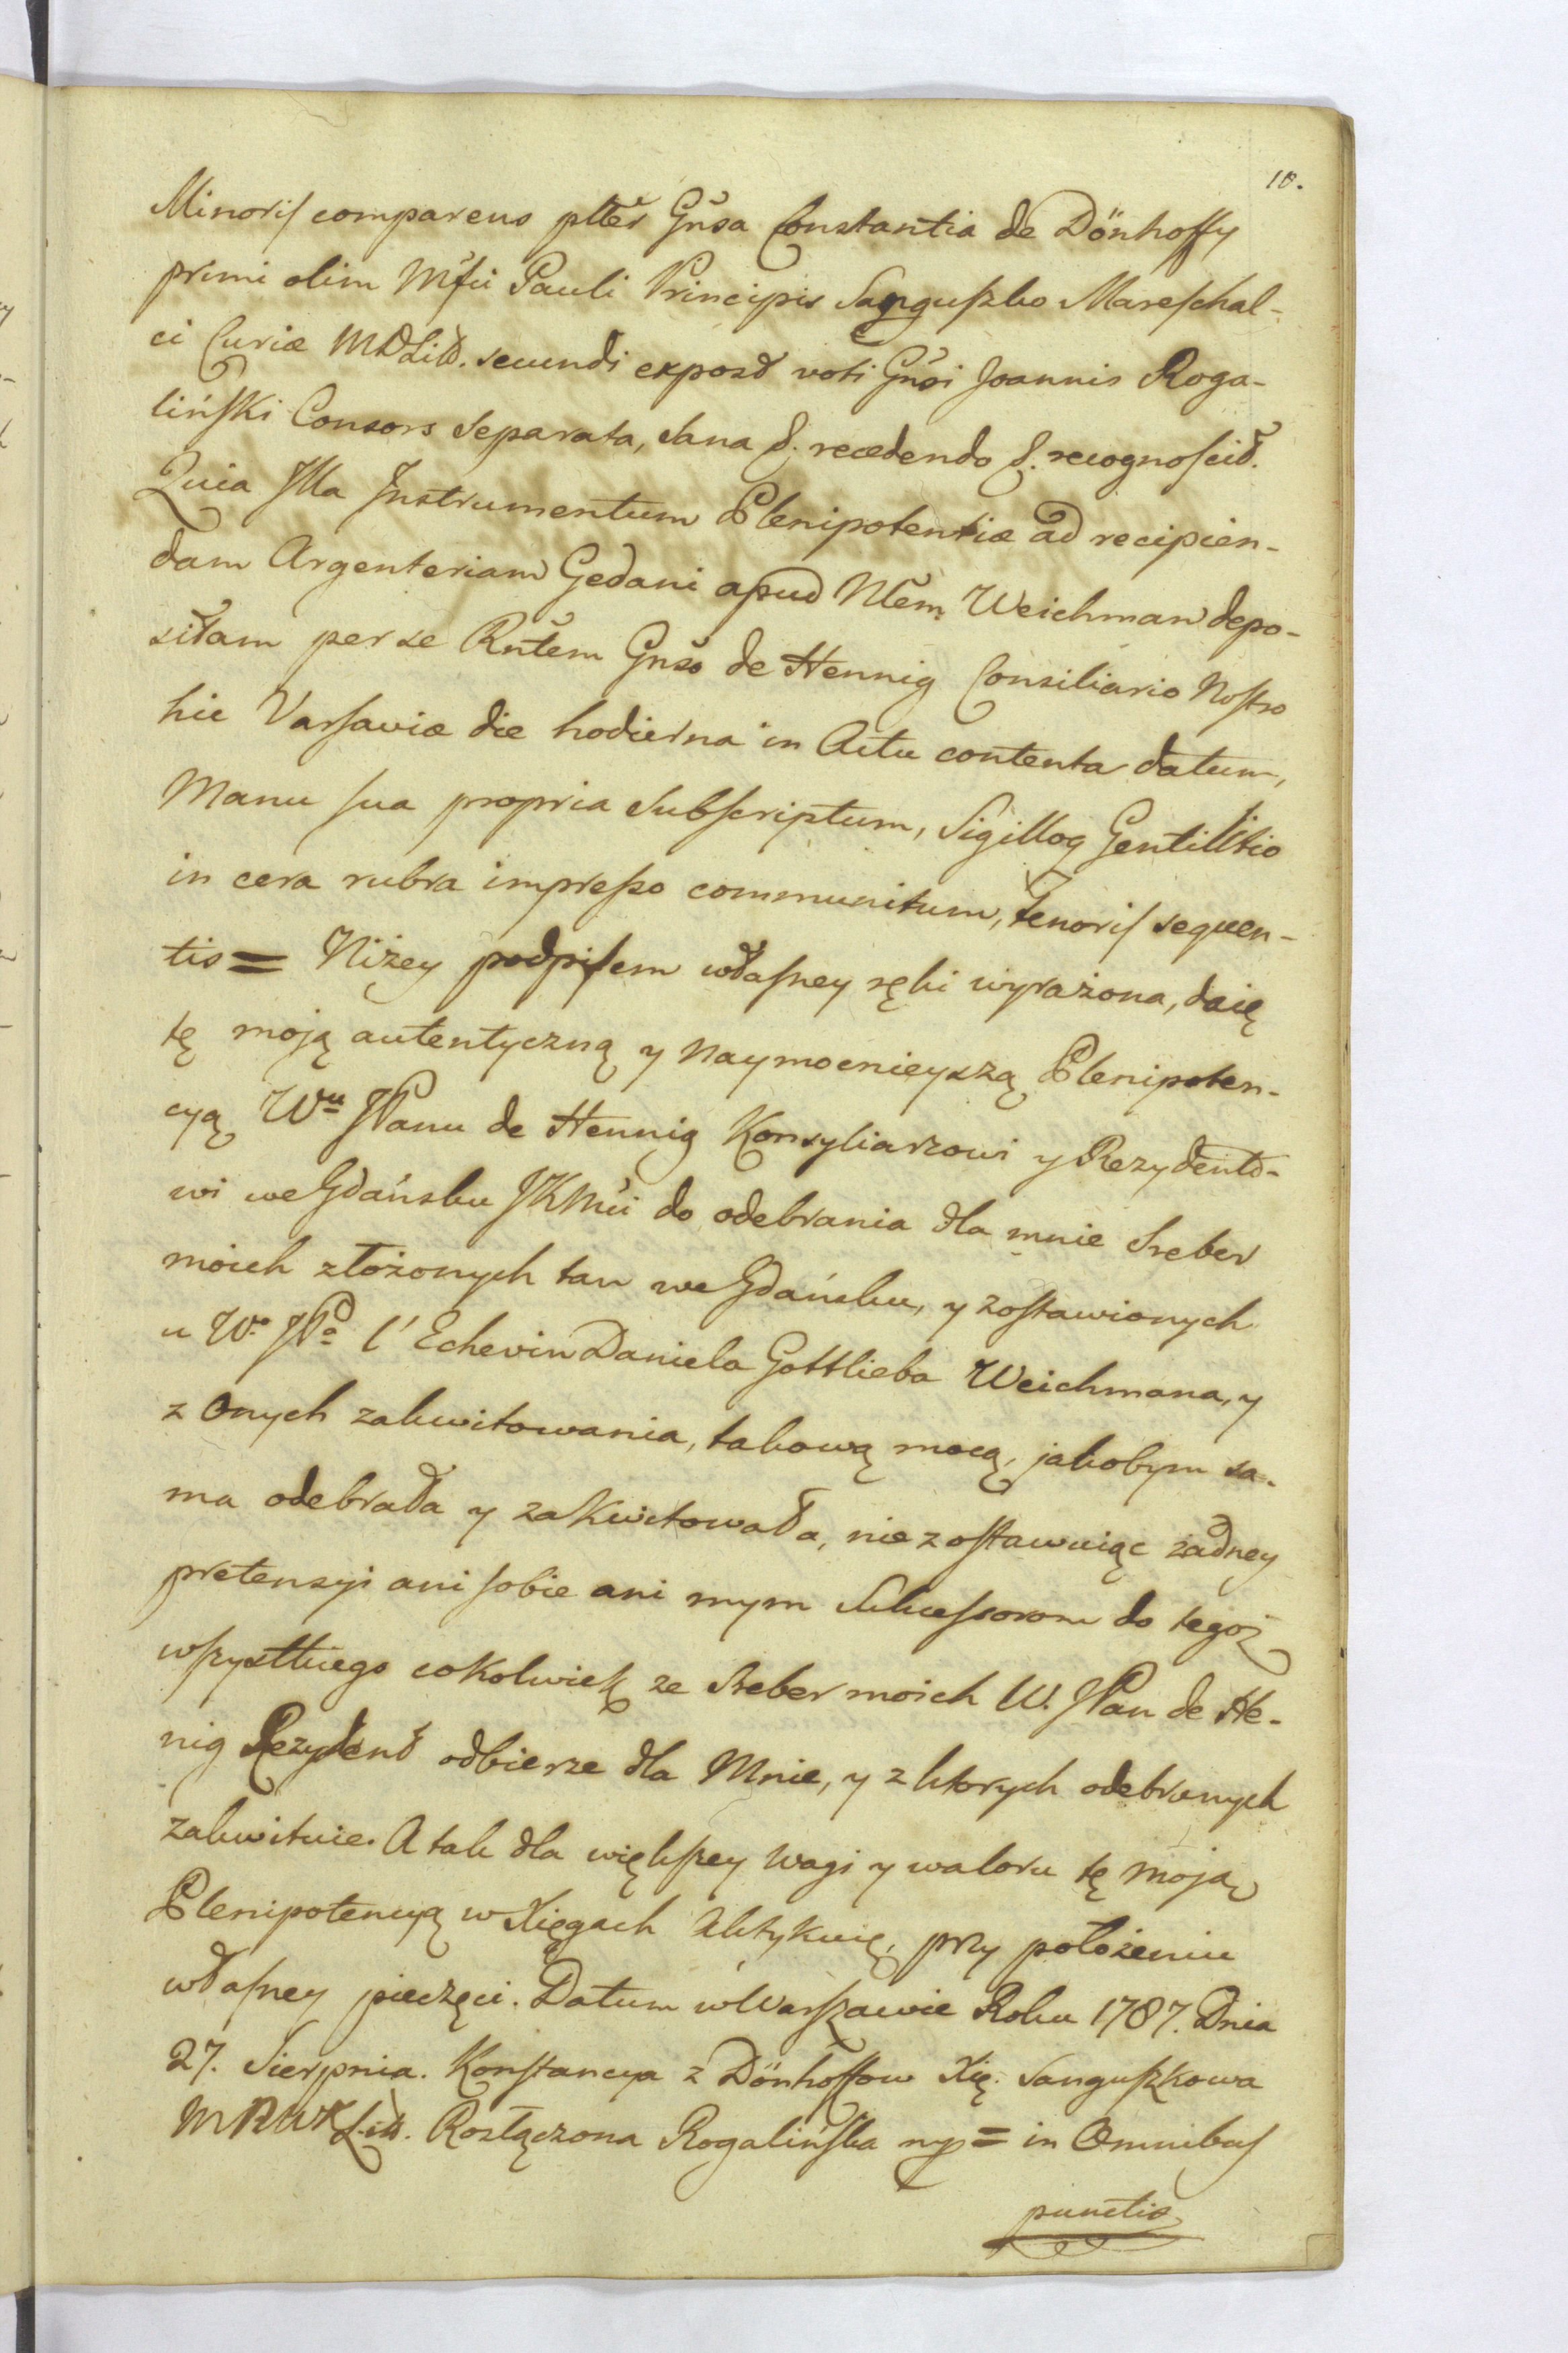 10.
Minoris comparens plter Gnsa Constantia de Dönhoffy
primi olim Mfci Pauli Principis Sanguszko Mareschal-
ci Curiæ MDLitt. secundi exposd voti Gnsi Joannis Roga-
liński Consors Separata, sana &. recedendo &. recognoscit.
Quia Illa Instrumentum Plenipotentiæ ad recipien-
dam Argenteriam Gedani apud Nlem Weichman depo-
sitam per se Rntem Gnso de Hennig Consiliario Nostro
hic Varsaviæ die hodierna in Actu contenta datum,
Manu sua propria Subscriptum, Sigilloq Gentilitio
in cera rubra impresso communitum, Tenoris sequen-
tis = Niżey podpisem własney ręki wyrażona, daię
tę moją autentyczną y naymocnieyszą Plenipoten-
cyą Wu JPanu de Hennig Konsyliarzowi y Rezydento-
wi we Gdańsku JKMci do odebrania dla mnie Sreber
moich złożonych tam we Gdańsku, y zostawionych
u Wo JPa l'Echevin Daniela Gottlieba Weichmana, y
z onych zakwitowania, takową mocą, jakobym sa-
ma odebrała y zakwitowała, nie zostawuiąc żadney
pretensyi ani sobie ani mym Sukcessorom do tegoż
wszystkiego cokolwiek ze Sreber moich W. JPan de He-
nig Rezydent odbierze dla Mnie, y z ktorych odebranych
zakwituie. A tak dla większey wagi y waloru tę moją
Plenipotencyą w Xięgach Aktykuię, przy położeniu
własney pieczęci. Datum w Warszawie Roku 1787. Dnia
27. Sierpnia. Konstancya z Dönhoffow Xię. Sanguszkowa
MNWXLitt. Rozłączona Rogalińska mp = in Omnibus
punctis